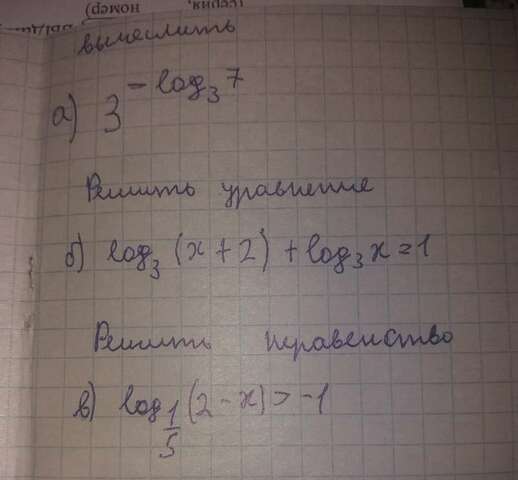 вычислить
а) 3^{-log_3 7}
Решить уравнение
б) log_3 (x + 2) + log_3 x = 1
Решить неравенство
в) log_{1/5} (2 - x) > -1